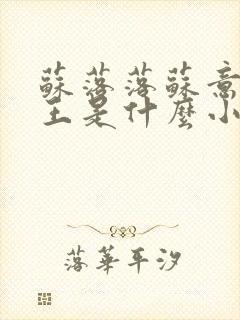 蘇落落蘇意
王是什麼小
落華平汐